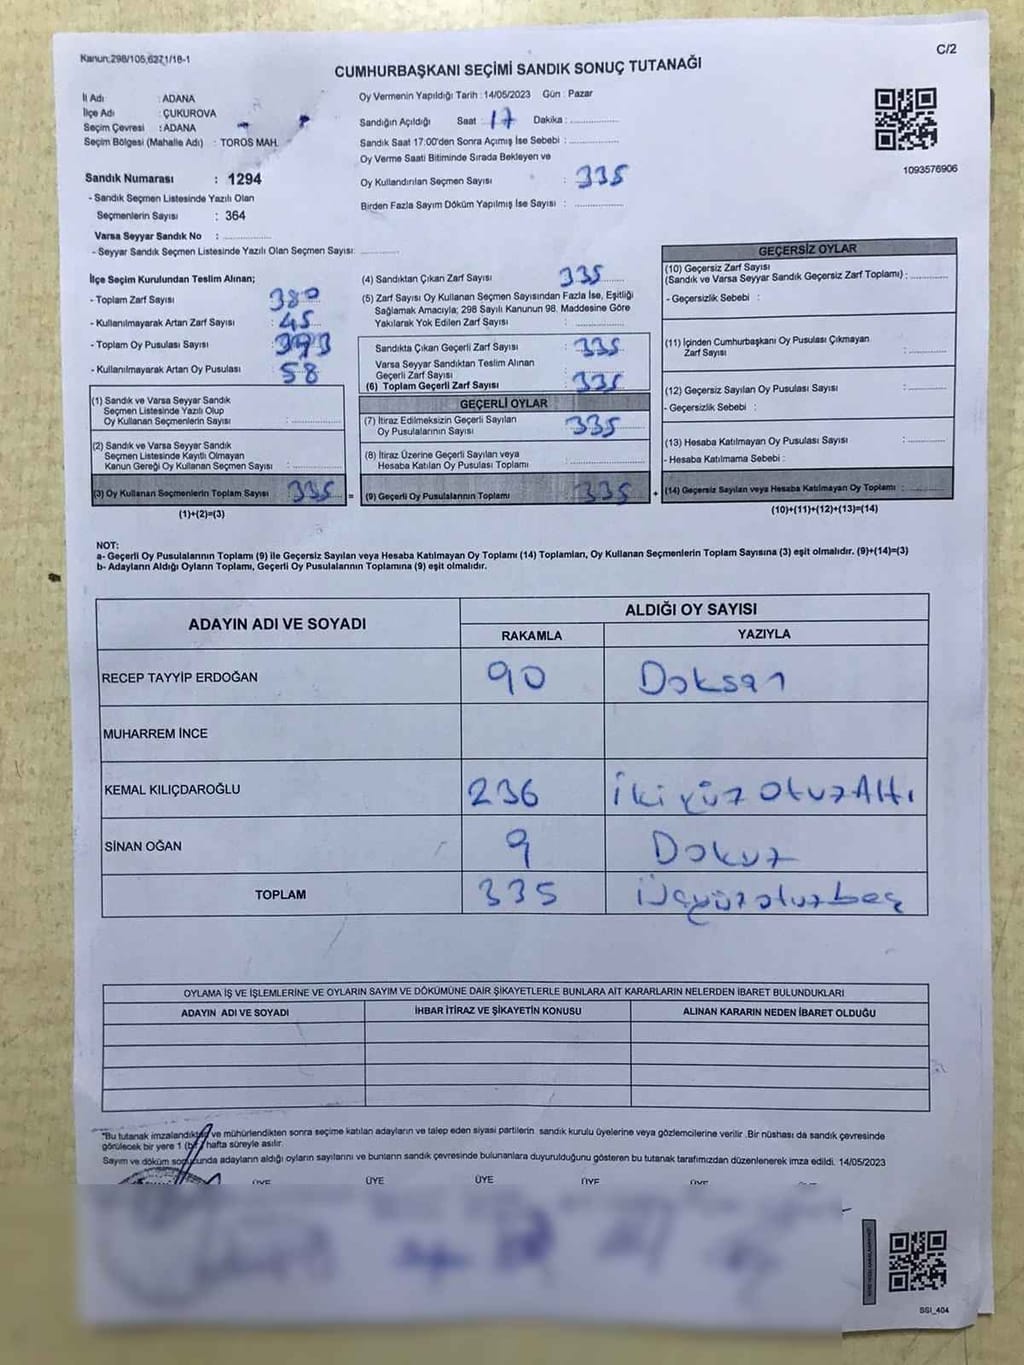 Kanun:298/105,6271/18-1
C/2
CUMHURBAŞKANI SEÇİMİ SANDIK SONUÇ TUTANAĞI
İl Adı : ADANA
İlçe Adı : ÇUKUROVA
Seçim Çevresi : ADANA
Seçim Bölgesi (Mahalle Adı) : TOROS MAH.
Sandık Numarası : 1294
- Sandık Seçmen Listesinde Yazılı Olan
Seçmenlerin Sayısı : 364
Varsa Seyyar Sandık No : ..............
- Seyyar Sandık Seçmen Listesinde Yazılı Olan Seçmen Sayısı: ..............
Oy Vermenin Yapıldığı Tarih : 14/05/2023 Gün : Pazar
Sandığın Açıldığı Saat : 17 Dakika : ..............
Sandık Saat 17:00'den Sonra Açımış İse Sebebi : ..............
Oy Verme Saati Bitiminde Sırada Bekleyen ve
Oy Kullandırılan Seçmen Sayısı : 335
Birden Fazla Sayım Döküm Yapılmış İse Sayısı : ..............
1093576906
İlçe Seçim Kurulundan Teslim Alınan;
- Toplam Zarf Sayısı : 380
- Kullanılmayarak Artan Zarf Sayısı : 45
- Toplam Oy Pusulası Sayısı : 393
- Kullanılmayarak Artan Oy Pusulası : 58
(1) Sandık ve Varsa Seyyar Sandık
Seçmen Listesinde Yazılı Olup
Oy Kullanan Seçmenlerin Sayısı : ..............
(2) Sandık ve Varsa Seyyar Sandık
Seçmen Listesinde Kayıtlı Olmayan
Kanun Gereği Oy Kullanan Seçmen Sayısı : ..............
(3) Oy Kullanan Seçmenlerin Toplam Sayısı : 335 =
(1)+(2)=(3)
(4) Sandıktan Çıkan Zarf Sayısı : 335
(5) Zarf Sayısı Oy Kullanan Seçmen Sayısından Fazla İse, Eşitliği
Sağlamak Amacıyla; 298 Sayılı Kanunun 98. Maddesine Göre
Yakılarak Yok Edilen Zarf Sayısı : ..............
Sandıkta Çıkan Geçerli Zarf Sayısı : 335
Varsa Seyyar Sandıktan Teslim Alınan
Geçerli Zarf Sayısı : ..............
(6) Toplam Geçerli Zarf Sayısı : 335
GEÇERLİ OYLAR
(7) İtiraz Edilmeksizin Geçerli Sayılan
Oy Pusulalarının Sayısı : 335
(8) İtiraz Üzerine Geçerli Sayılan veya
Hesaba Katılan Oy Pusulası Toplamı : ..............
(9) Geçerli Oy Pusulalarının Toplamı : 335 +
GEÇERSİZ OYLAR
(10) Geçersiz Zarf Sayısı
(Sandık ve Varsa Seyyar Sandık Geçersiz Zarf Toplamı) : ..............
- Geçersizlik Sebebi :
(11) İçinden Cumhurbaşkanı Oy Pusulası Çıkmayan
Zarf Sayısı : ..............
(12) Geçersiz Sayılan Oy Pusulası Sayısı : ..............
- Geçersizlik Sebebi :
(13) Hesaba Katılmayan Oy Pusulası Sayısı : ..............
- Hesaba Katılmama Sebebi :
(14) Geçersiz Sayılan veya Hesaba Katılmayan Oy Toplamı : ..............
(10)+(11)+(12)+(13)=(14)
NOT:
a- Geçerli Oy Pusulalarının Toplamı (9) ile Geçersiz Sayılan veya Hesaba Katılmayan Oy Toplamı (14) Toplamları, Oy Kullanan Seçmenlerin Toplam Sayısına (3) eşit olmalıdır. (9)+(14)=(3)
b- Adayların Aldığı Oyların Toplamı, Geçerli Oy Pusulalarının Toplamına (9) eşit olmalıdır.
ADAYIN ADI VE SOYADI ALDIĞI OY SAYISI
RAKAMLA YAZIYLA
RECEP TAYYİP ERDOĞAN 90 Doksan
MUHARREM İNCE
KEMAL KILIÇDAROĞLU 236 İki yüz otuz Altı
SİNAN OĞAN 9 Dokuz
TOPLAM 335 Üçyüz otuz beş
OYLAMA İŞ VE İŞLEMLERİNE VE OYLARIN SAYIM VE DÖKÜMÜNE DAİR ŞİKAYETLERLE BUNLARA AİT KARARLARIN NELERDEN İBARET BULUNDUKLARI
ADAYIN ADI VE SOYADI İHBAR İTİRAZ VE ŞİKAYETİN KONUSU ALINAN KARARIN NEDEN İBARET OLDUĞU
"Bu tutanak imzalandıktan ve mühürlendikten sonra seçime katılan adayların ve talep eden siyasi partilerin sandık kurulu üyelerine veya gözlemcilerine verilir .Bir nüshası da sandık çevresinde
görülecek bir yere 1 (bir) hafta süreyle asılır.
Sayım ve döküm sonucunda adayların aldığı oyların sayılarını ve bunların sandık çevresinde bulunanlara duyurulduğunu gösteren bu tutanak tarafımızdan düzenlenerek imza edildi. 14/05/2023
ÜYE ÜYE ÜYE ÜYE ÜYE
SSI_404